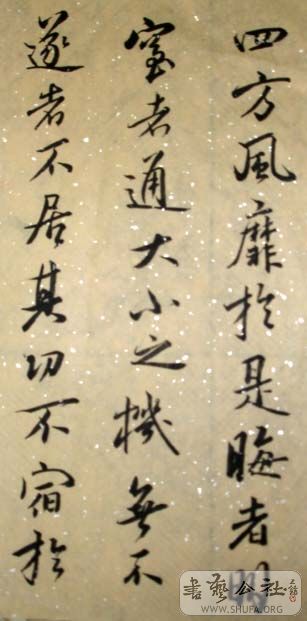 四方風靡於是晦者明
窒者通大小之機無不
遂者不居其功不宿於
書藝公社
WWW.SHUFA.ORG